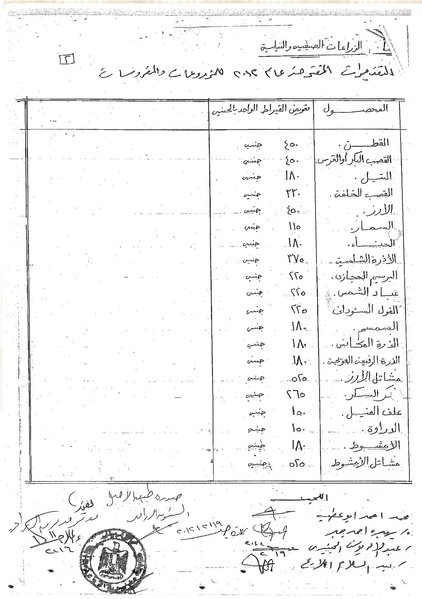 الزراعات الصيفية والنيلية
[٣]
التقديرات المقترحة عام ٢٠١٢ للمزروعات والمغروسات
المحصول تعويض القيراط الواحد بالجنيه
القطن. ٤٥٠ جنيه
القصب البكر أو الغرس. ٤٥٠ جنيه
التيل. ١٨٠ جنيه
القصب الخلفة. ٣٣٠ جنيه
الأرز. ٤٥٠ جنيه
السمار. ١١٥ جنيه
الحناء. ١٨٠ جنيه
الأذرة الشامية. ٣٧٥ جنيه
البرسيم الحجازى. ٢٢٥ جنيه
عباد الشمس. ٢٢٥ جنيه
الفول السودانى ٢٢٥ جنيه
السمسم. ١٨٠ جنيه
الذرة المكانس. ١٨٠ جنيه
الذرة الرفيعة العويجة. ١٨٠ جنيه
مشاتل الأرز. ٥٢٥ جنيه
بنجر السكر. ٢٦٥ جنيه
علف الفيل. ١٥٠ جنيه
الدراوة. ١٥٠ جنيه
الأمشوط. ١٨٠ جنيه
مشاتل الأمشوط ٥٢٥ جنيه
اللجنة
صورة طبق الأصل